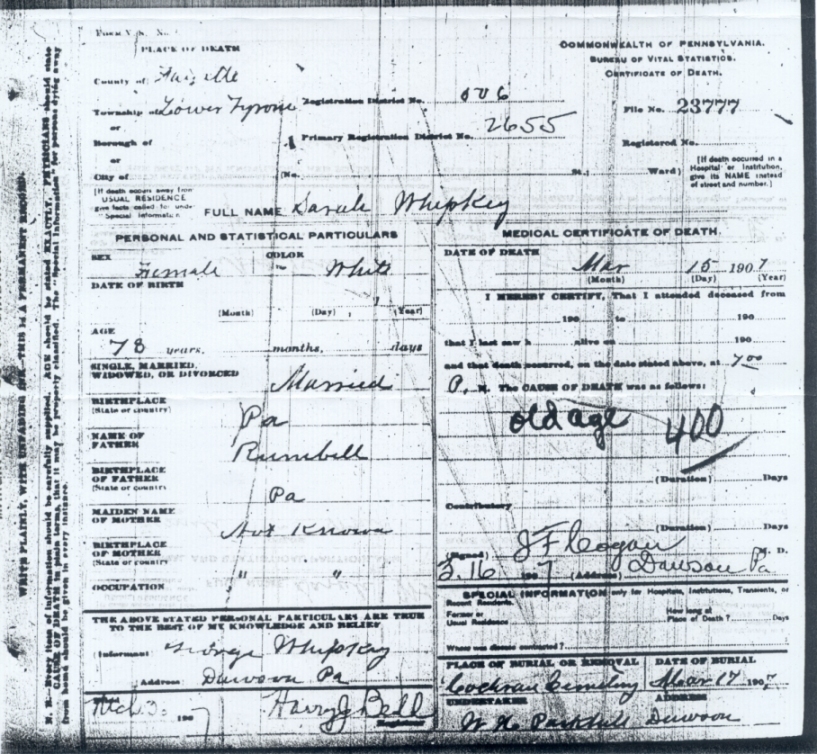 FORM V. S. No.
PLACE OF DEATH
COMMONWEALTH OF PENNSYLVANIA.
BUREAU OF VITAL STATISTICS.
CERTIFICATE OF DEATH.
County of Fayette
Township of Lower Tyrone Registration District No.
File No. 23777
or
Borough of Primary Registration District No. 2655
Registered No.
or
City of (No. St.; Ward)
[If death occurred in a Hospital or Institution, give its NAME instead of street and number.]
[If death occurs away from USUAL RESIDENCE give facts called for under "Special Information."
FULL NAME Sarah Whipkey
PERSONAL AND STATISTICAL PARTICULARS
SEX Female COLOR White
DATE OF BIRTH
(Month) (Day) (Year)
AGE
78 years, months, days
SINGLE, MARRIED,
WIDOWED, OR DIVORCED Married
BIRTHPLACE
(State or country) Pa
NAME OF
FATHER
BIRTHPLACE
OF FATHER
(State or country) Pa
MAIDEN NAME
OF MOTHER Not Known
BIRTHPLACE
OF MOTHER
(State or country)
OCCUPATION " "
THE ABOVE STATED PERSONAL PARTICULARS ARE TRUE
TO THE BEST OF MY KNOWLEDGE AND BELIEF
(Informant George Whipkey
(Address Dawson Pa
190 7 Harry J Bell
Registrar
MEDICAL CERTIFICATE OF DEATH.
DATE OF DEATH
Mar 15 1907
(Month) (Day) (Year)
I HEREBY CERTIFY, That I attended deceased from
190 to 190
that I last saw h alive on 190
and that death occurred, on the date stated above, at 7 00
P. M. The CAUSE OF DEATH was as follows:
old age 400
(Duration) Days
Contributory
(Duration) Days
(Signed) J F Cogan M. D.
3.16 190 7 (Address) Dawson Pa
SPECIAL INFORMATION only for Hospitals, Institutions, Transients, or
Recent Residents.
Former or
Usual Residence
How long at
Place of Death? Days
Where was disease contracted?
PLACE OF BURIAL OR REMOVAL DATE OF BURIAL
Cochran Cemetery Mar 17 1907
UNDERTAKER ADDRESS
Dawson
WRITE PLAINLY, WITH UNFADING INK—THIS IS A PERMANENT RECORD.
N. B.—Every item of information should be carefully supplied. AGE should be stated EXACTLY. PHYSICIANS should state
CAUSE OF DEATH in plain terms, that it may be properly classified. The "Special Information" for persons dying away
from home should be given in every instance.